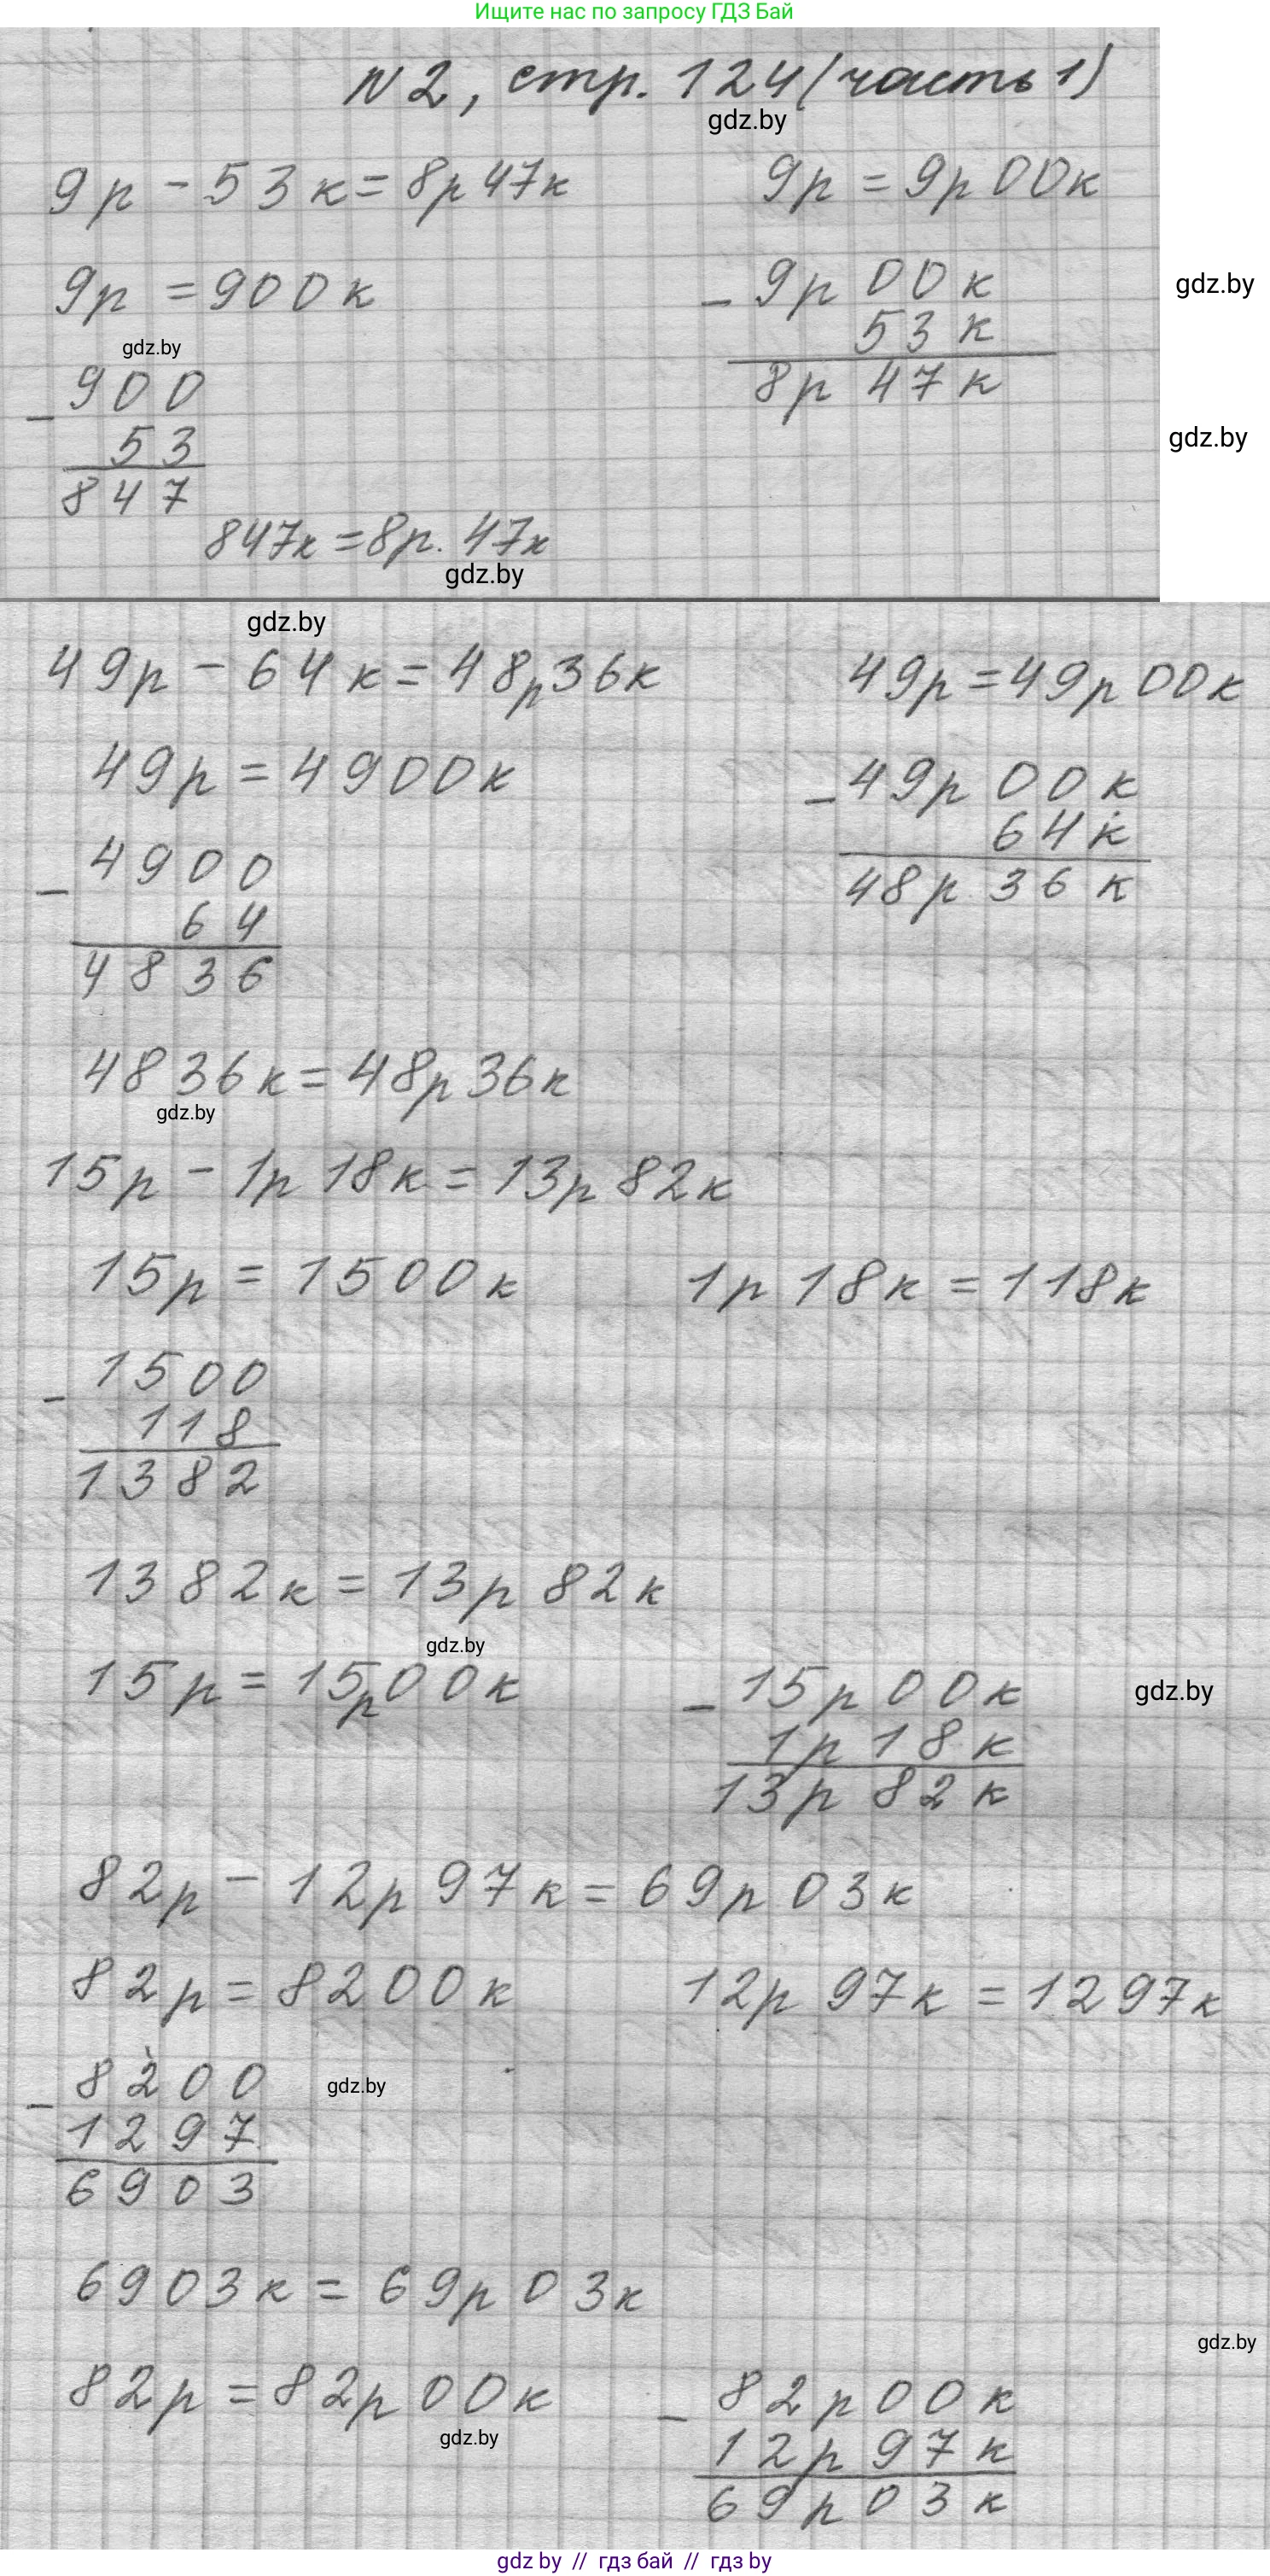 Ищите нас по запросу ГДЗ Бай
N2, стр. 124 (часть 1)
gdz.by
9р - 53к = 8р 47к
9р = 9р 00к
9р = 900к
- 9р 00к
gdz.by
53к
gdz.by
8р 47к
- 900
gdz.by
53
847
847к = 8р. 47к
gdz.by
gdz.by
49р - 64к = 48р 36к
49р = 49р 00к
49р = 4900к
- 49р 00к
64к
48р 36к
- 4900
64
4836
4836к = 48р 36к
gdz.by
15р - 1р 18к = 13р 82к
15р = 1500к
1р 18к = 118к
- 1500
118
1382
1382к = 13р 82к
gdz.by
15р = 15р 00к
- 15р 00к
gdz.by
1р 18к
13р 82к
82р - 12р 97к = 69р 03к
82р = 8200к
12р 97к = 1297к
- 8200
gdz.by
1297
6903
6903к = 69р 03к
gdz.by
82р = 82р 00к
- 82р 00к
gdz.by
12р 97к
69р 03к
gdz by // гдз бай // гдз by